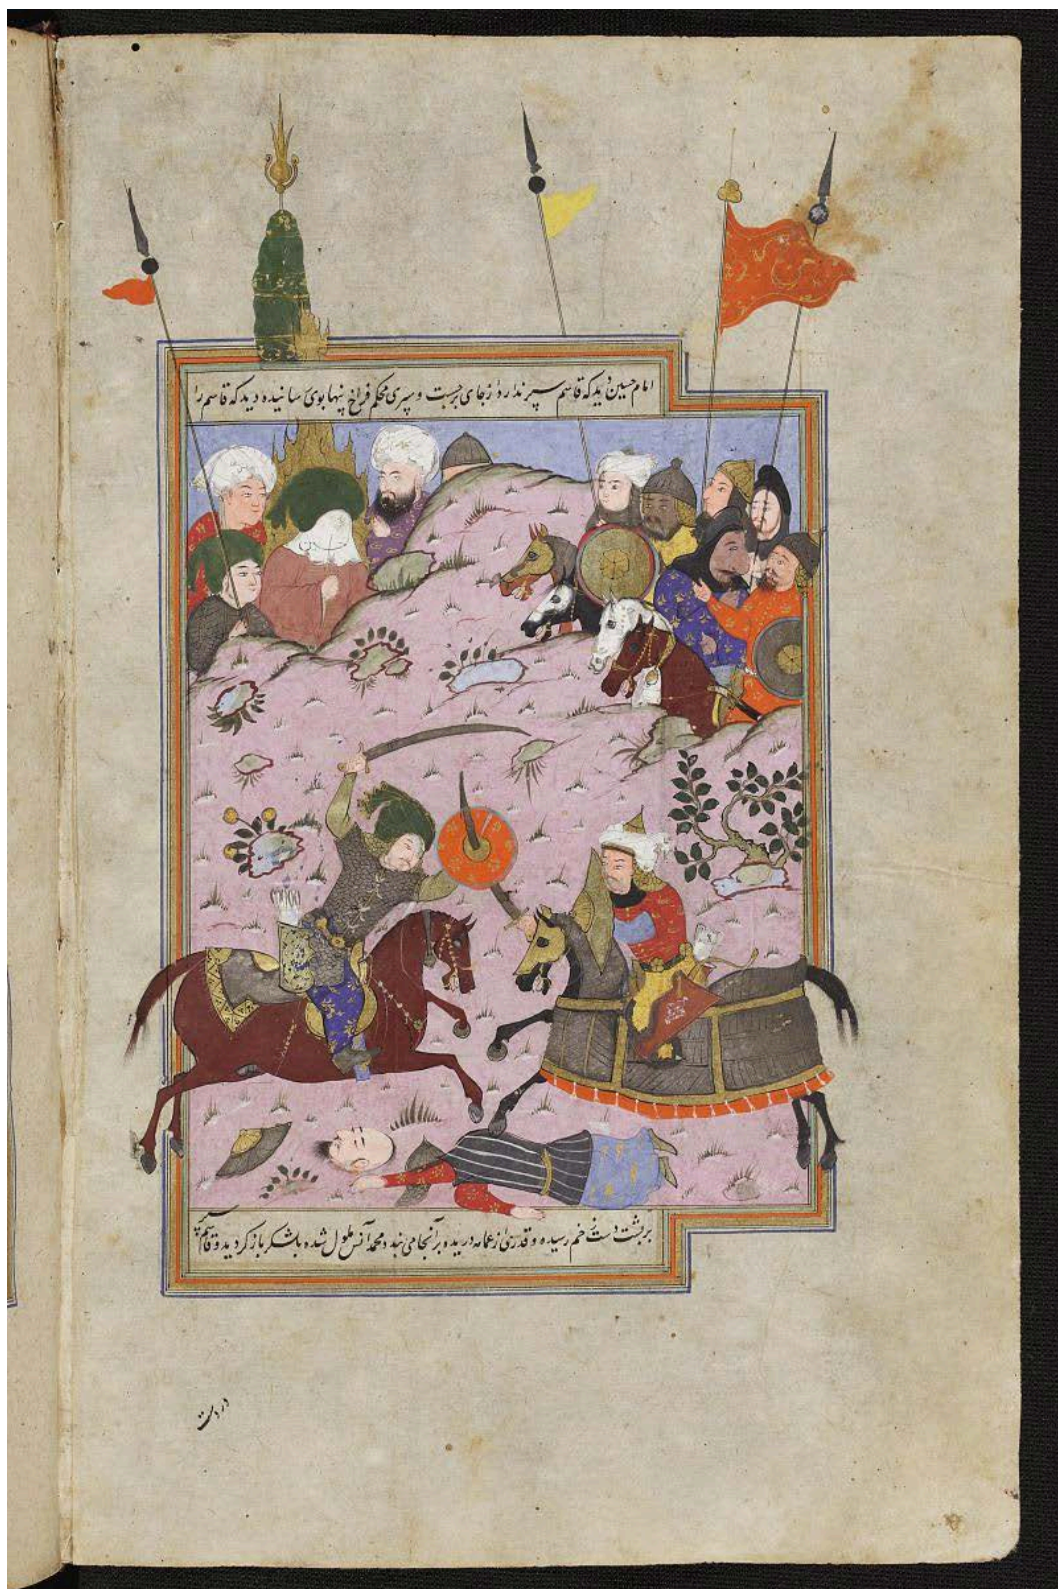 امام حسین دید که قاسم سپر ندارد از جای برجست و سپری محکم فراخ پنها بوی سانیده دید که قاسم را
بر پشت دست زخم رسیده و قدری از عمامه درید و بر آنجا می بندد محمد انس ملول شده باشکر باز کردید و قاسم سپر